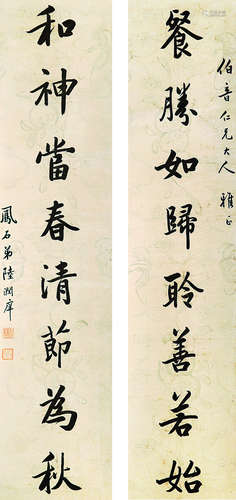 伯音仁兄大人雅正
餐勝如歸聆善若始
和神當春清節為秋
鳳石弟陸潤庠